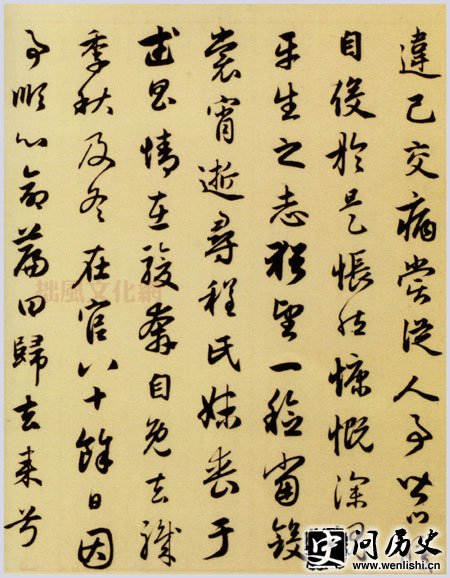 違己交病嘗從人事皆口
自役於是悵然慷慨深愧
平生之志猶望一稔當斂
裳宵逝尋程氏妹喪于
武昌情在駿奔自免去職
季秋及冬在官八十餘日因
事順心命篇曰歸去來兮
拙風文化網
问历史
www.wenlishi.cn